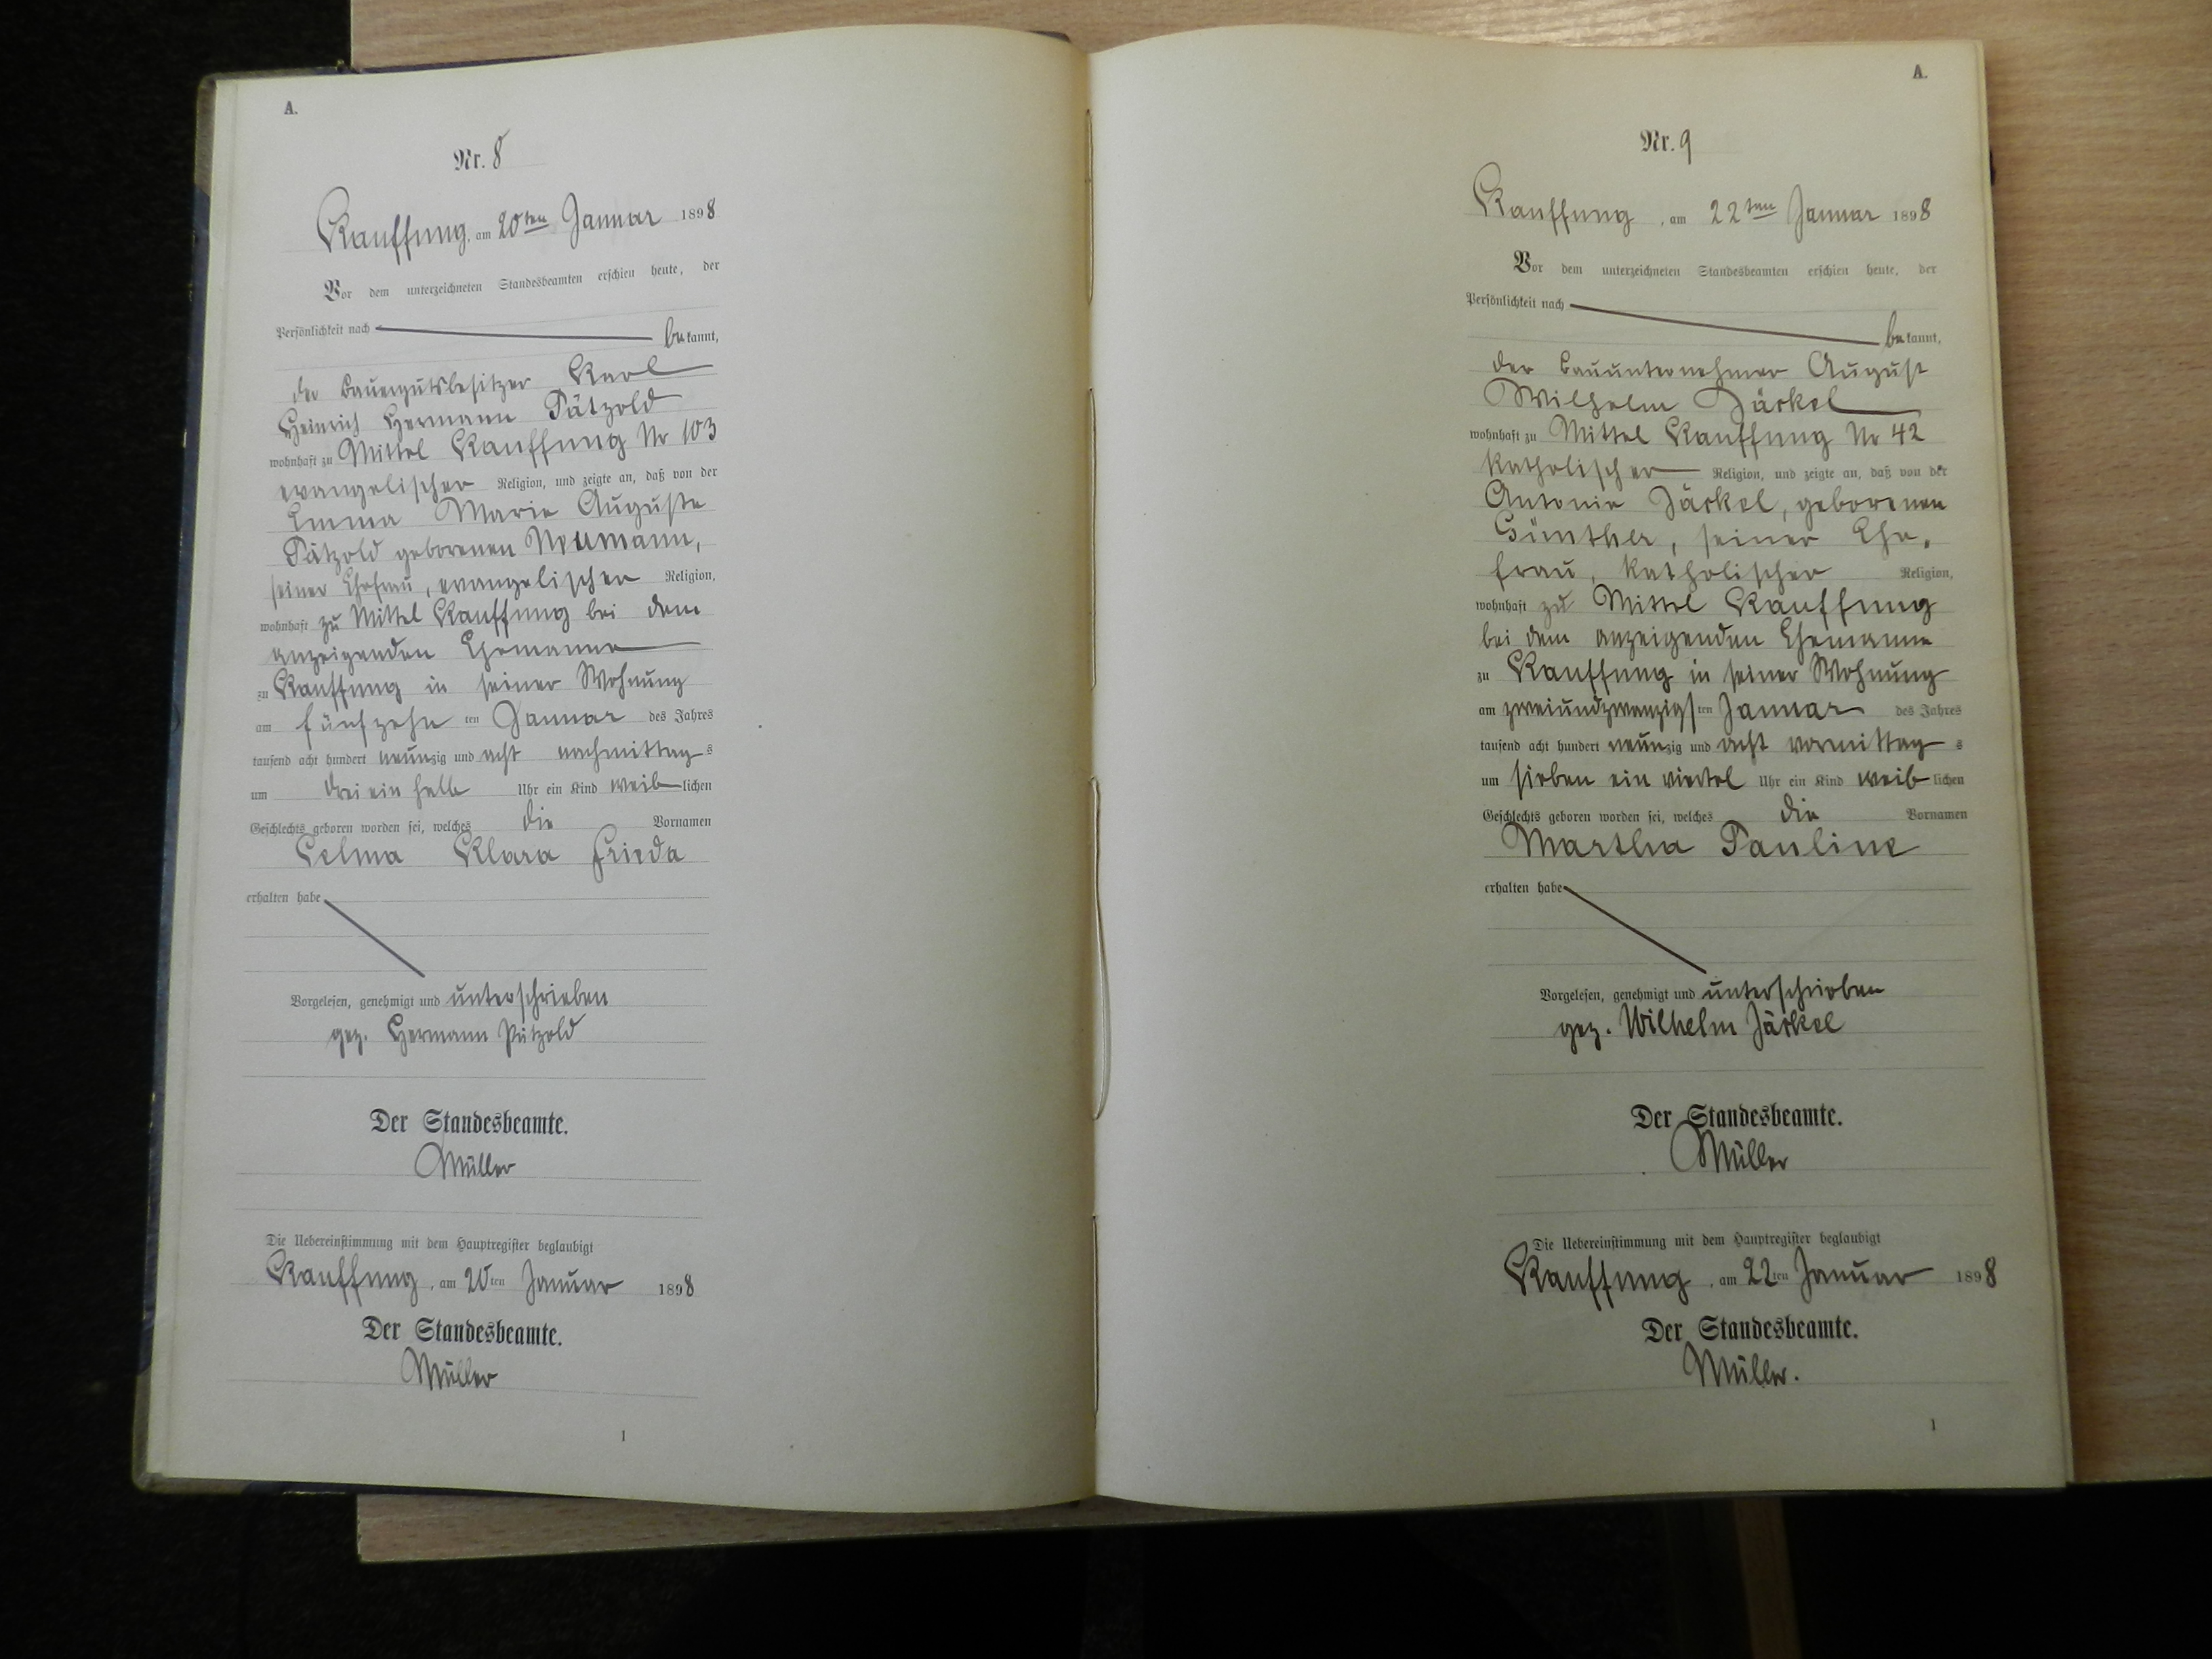 A.
Nr. 8
Kauffung, am 20ten Januar 1898
Vor dem unterzeichneten Standesbeamten erschien heute, der
Persönlichkeit nach
bekannt,
der Bauergutsbesitzer Karl
Heinrich Hermann Pätzold
wohnhaft zu Mittel Kauffung Nr 103
evangelischer Religion, und zeigte an, daß von der
Emma Marie Auguste
Pätzold geborenen Neumann,
seiner Ehefrau, evangelischer Religion,
wohnhaft zu Mittel Kauffung bei dem
anzeigenden Ehemanne
zu Kauffung in seiner Wohnung
am fünfzehnten Januar des Jahres
tausend acht hundert neunzig und acht nachmittags
um drei ein halb Uhr ein Kind weiblichen
Geschlechts geboren worden sei, welches die Vornamen
Selma Klara Frieda
erhalten habe
Vorgelesen, genehmigt und unterschrieben
gez. Hermann Pätzold
Der Standesbeamte.
Müller
Die Uebereinstimmung mit dem Hauptregister beglaubigt
Kauffung, am 20ten Januar 1898
Der Standesbeamte.
Müller
1
A.
Nr. 9
Kauffung, am 22ten Januar 1898
Vor dem unterzeichneten Standesbeamten erschien heute, der
Persönlichkeit nach
bekannt,
der Bauunternehmer August
Wilhelm Jäckel
wohnhaft zu Mittel Kauffung Nr 42
katholischer Religion, und zeigte an, daß von der
Antonie Jäckel, geborenen
Günther, seiner Ehe-
frau, katholischer Religion,
wohnhaft zu Mittel Kauffung
bei dem anzeigenden Ehemanne
zu Kauffung in seiner Wohnung
am zweiundzwanzigsten Januar des Jahres
tausend acht hundert neunzig und acht vormittags
um sieben ein viertel Uhr ein Kind weiblichen
Geschlechts geboren worden sei, welches die Vornamen
Martha Pauline
erhalten habe
Vorgelesen, genehmigt und unterschrieben
gez. Wilhelm Jäckel
Der Standesbeamte.
Müller
Die Uebereinstimmung mit dem Hauptregister beglaubigt
Kauffung, am 22ten Januar 1898
Der Standesbeamte.
Müller.
1